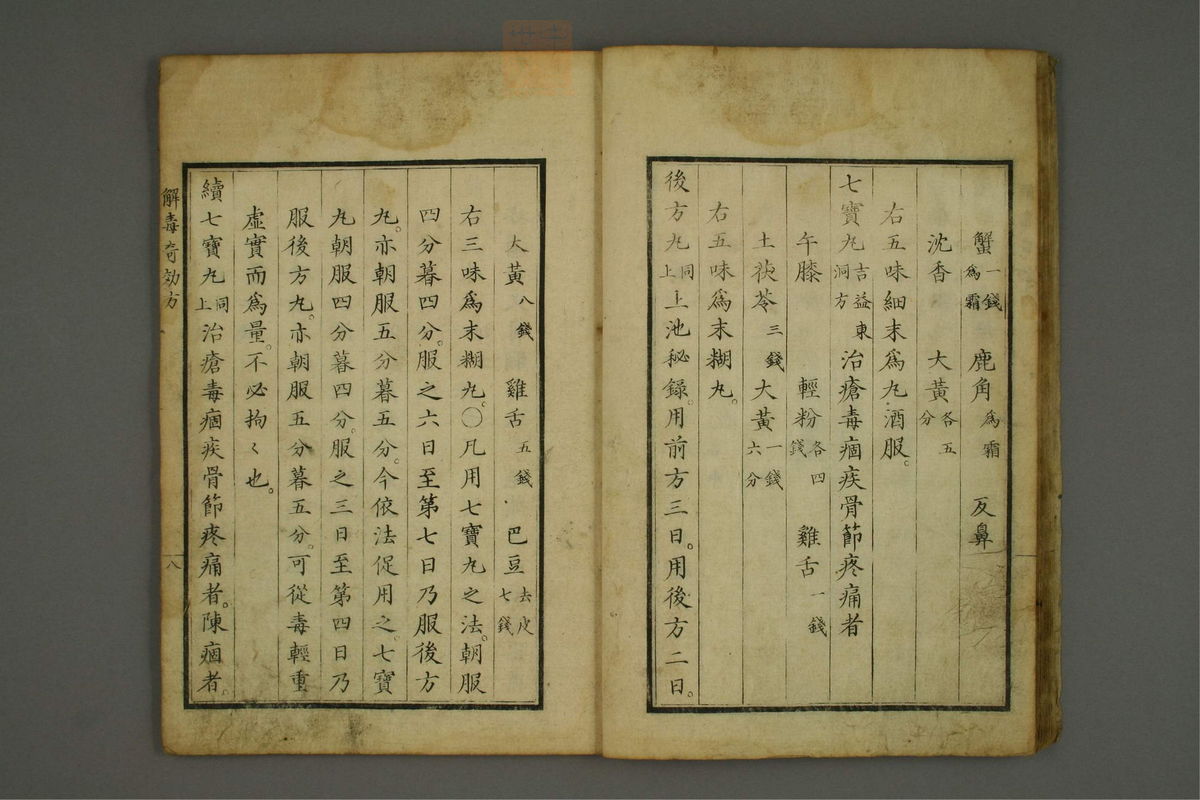 蟹一錢爲霜 鹿角爲霜 反鼻
沈香 大黃各五分
右五味細末爲丸酒服。
七寶丸吉益東洞方治瘡毒痼疾骨節疼痛者
午膝 輕粉各四錢 雞舌一錢
土茯苓三錢 大黃一錢六分
右五味爲末糊丸。
後方丸同上上池秘録。用前方三日。用後方二日。
大黃八錢 雞舌五錢 巴豆去皮七錢
右三味爲末糊丸。〇凡用七寶丸之法。朝服
四分暮四分。服之六日至第七日乃服後方
丸。亦朝服五分暮五分。今依法促用之。七寶
丸朝服四分暮四分。服之三日至第四日乃
服後方丸。亦朝服五分暮五分。可從毒輕重
虛實而爲量。不必拘〻也。
續七寶丸同上治瘡毒痼疾骨節疼痛者。陳痼者。
解毒奇効方
八